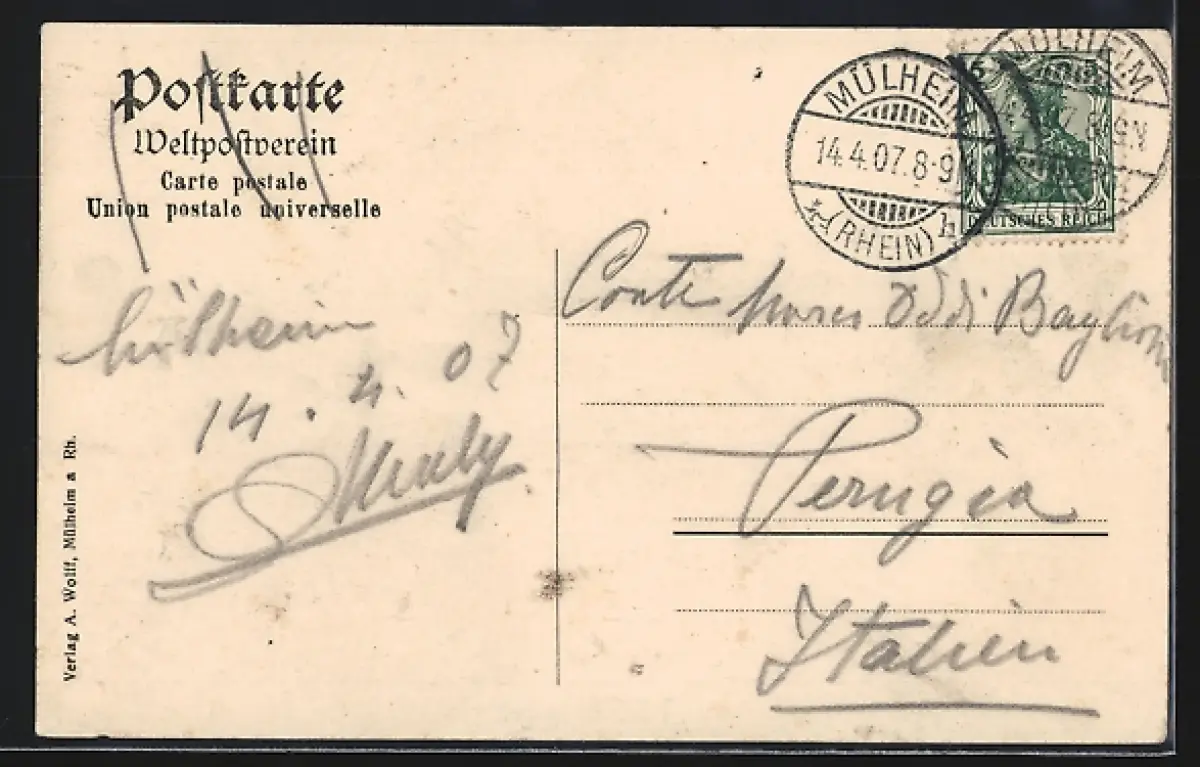 Postkarte
Weltpostverein
Carte postale
Union postale universelle
MÜLHEIM
14.4.07.8-9N
(RHEIN)
h
MÜLHEIM
5
DEUTSCHES REICH
Conte Oddi Baglioni
Perugia
Italien
Mülheim
14.4.07
Verlag A. Wolff, Mülheim a Rh.